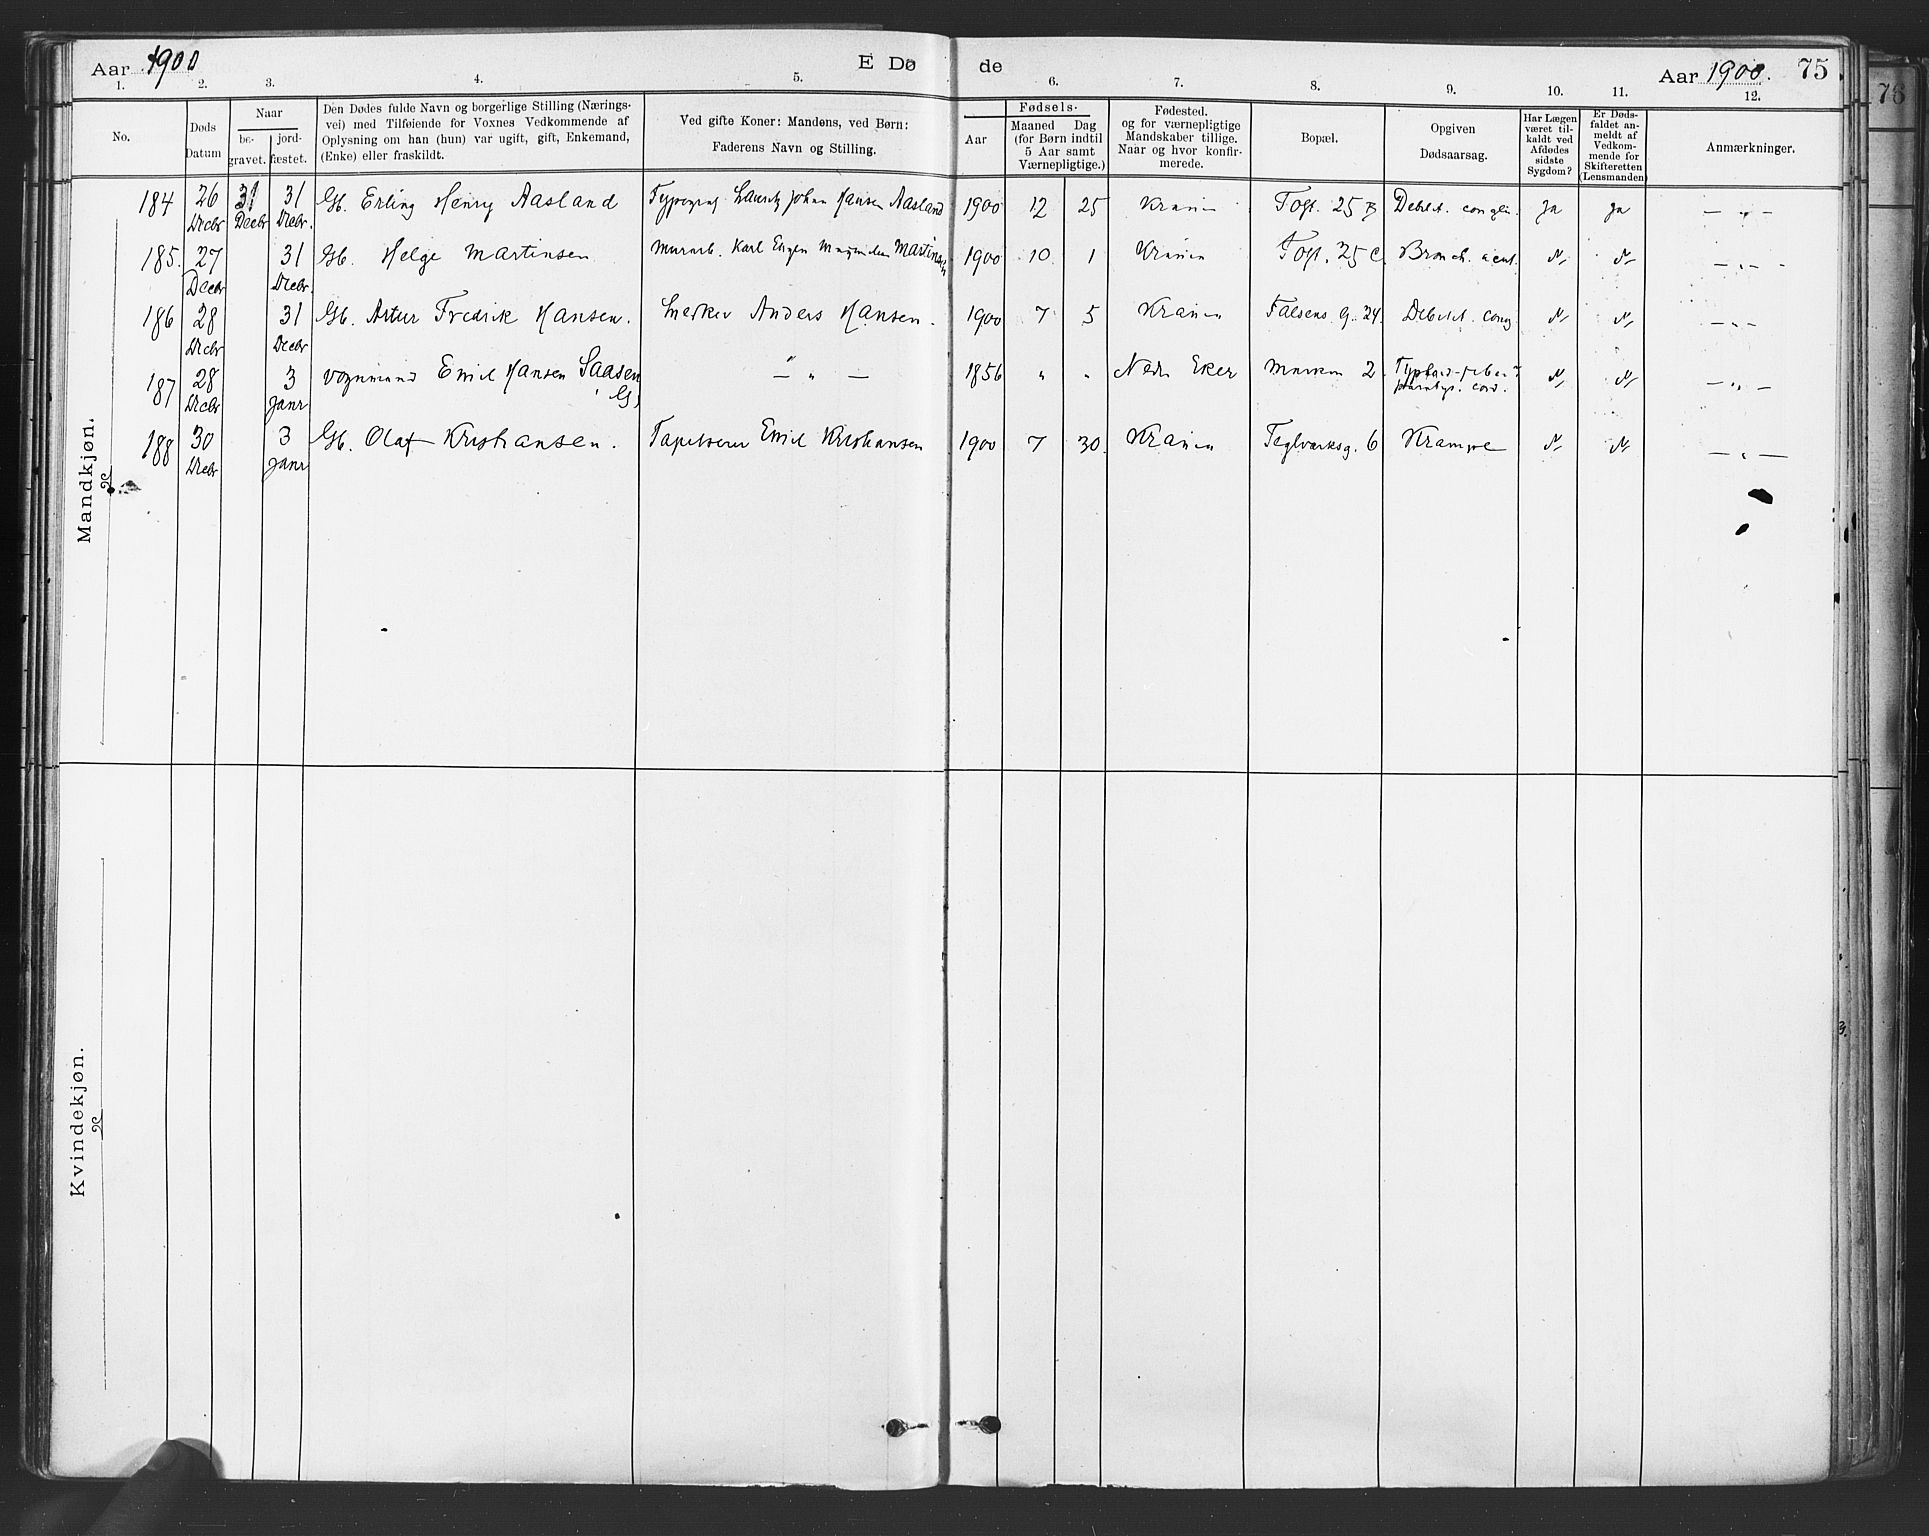 Aar 1900
E Dø
de
Aar 1900.
75
76
1. 2. 3. 4. 5. 6. 7. 8. 9. 10. 11. 12.
No.
Døds
Datum
Naar
be-
gravet.
jord-
fæstet.
Den Dødes fulde Navn og borgerlige Stilling (Nærings-
vei) med Tilføiende for Voxnes Vedkommende af
Oplysning om han (hun) var ugift, gift, Enkemand,
(Enke) eller fraskildt.
Ved gifte Koner: Mandens, ved Børn:
Faderens Navn og Stilling.
Fødsels-
Aar
Maaned Dag
(for Børn indtil
5 Aar samt
Værnepligtige.)
Fødested.
og for værnepligtige
Mandskaber tillige.
Naar og hvor konfir-
merede.
Bopæl.
Opgiven
Dødsaarsag.
Har Lægen
været til-
kaldt ved
Afdødes
sidste
Sygdom?
Er Døds-
faldet an-
meldt af
Vedkom-
mende for
Skifteretten
(Lensmanden)
Anmærkninger.
Mandkjøn.
184 26 Decbr 31 Decbr 31 Decbr. Gb. Erling Henry Aasland Typograf Lauritz Johan Hansen Aasland 1900 12 25 Krania Togt. 25 B Debilit. congen. Ja Ja — „ —
185. 27 Decbr 31 Decbr. Gb. Helge Martinsen Murarb. Karl Eugen Martinsen 1900 10 1 Krania Togt. 25 C. Bronch. acut. N N — „ —
186 28 Decbr 31 Decbr Gb. Artur Fredrik Hansen. Snedker Anders Hansen. 1900 7 5 Krania Falsens G. 24. Debilit. cong N N — „ —
187 28 Decbr 3 Janr Vognmand Emil Hansen Saasen G. — „ — 1856 „ „ Nedr Eker Marken 2. Typhoid-feber paralys. cord. N N — „ —
188 30 Decbr 3 Janr Gb. Olaf Kristiansen. Tapetserer Emil Kristiansen 1900 7 30. Krania Teglværksg. 6 Krampe N N — „ —
Kvindekjøn.